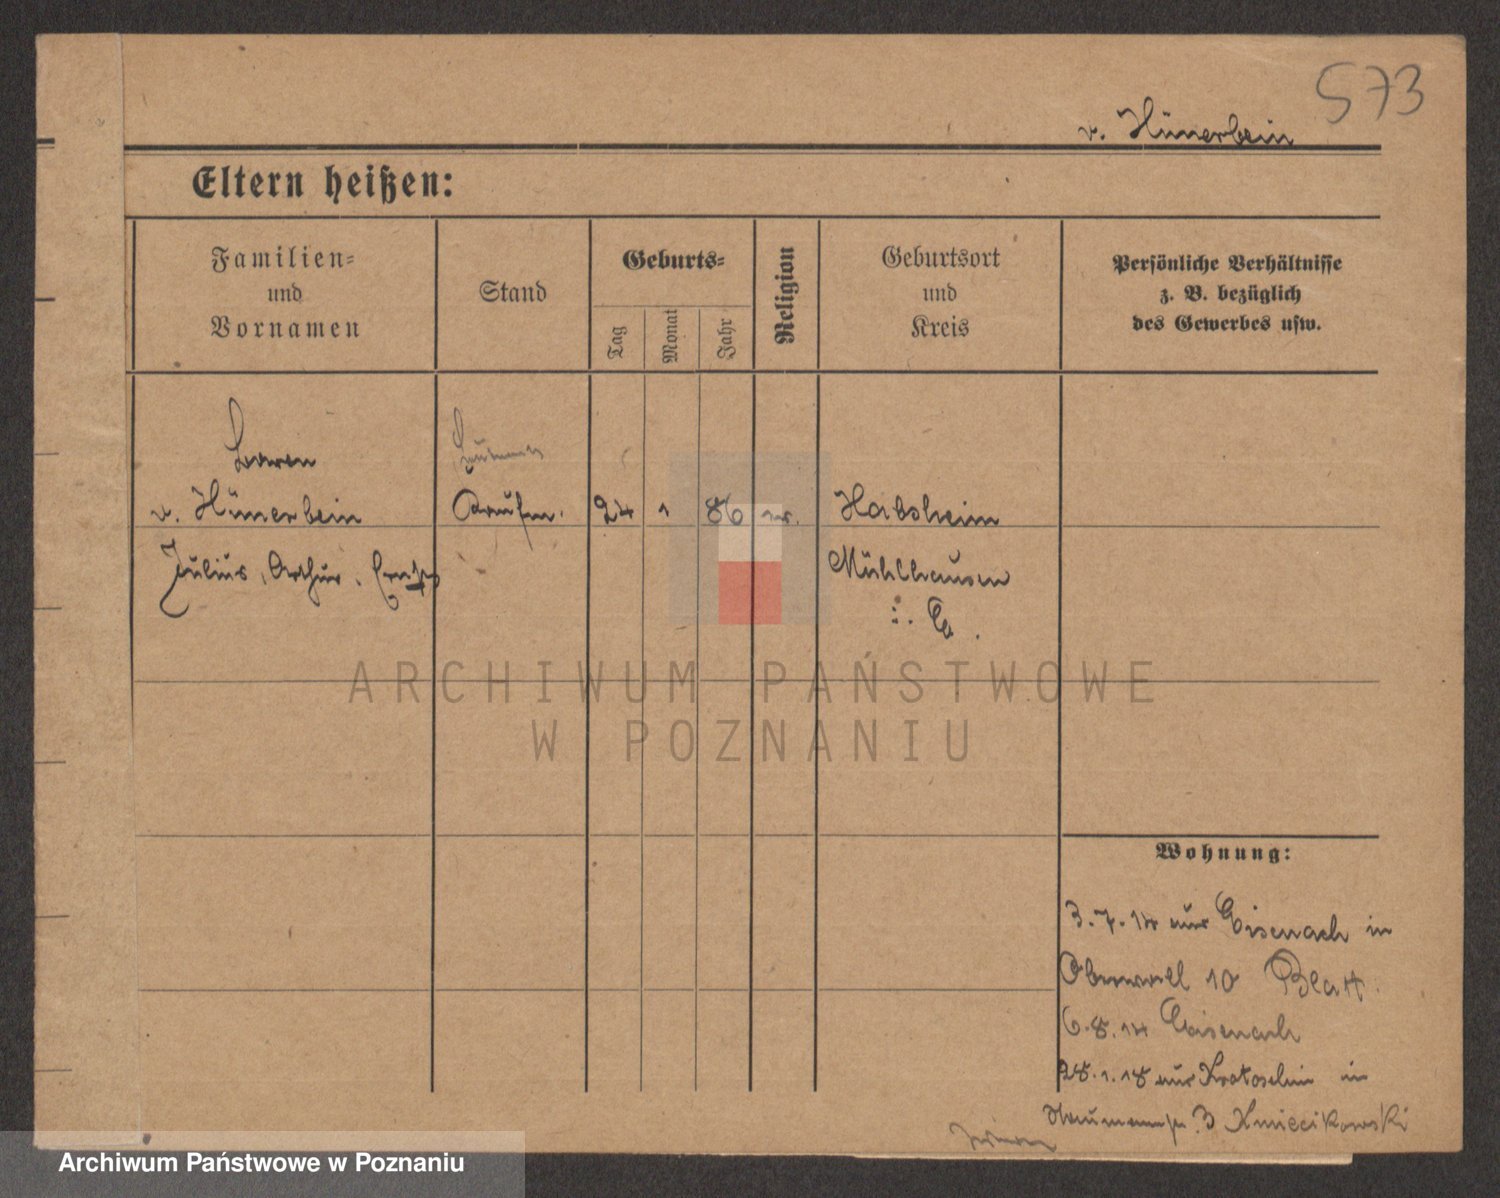 573
v. Hünerbein
Eltern heißen:
Familien-
und
Vornamen
Stand
Geburts-
Tag
Monat
Jahr
Religion
Geburtsort
und
Kreis
Persönliche Verhältnisse
z. B. bezüglich
des Gewerbes usw.
v. Hünerbein
Julius, Arthur,
Kaufm.
24
1
86
Habsheim
Mühlhausen
i. E.
Wohnung:
3.7.14 aus Eisenach in
Oberwall 10 Blatt
6.8.14 Eisenach
28.1.18 aus Krotoschin in
3 Kmiecikowski
ARCHIWUM PAŃSTWOWE
W POZNANIU
Archiwum Państwowe w Poznaniu